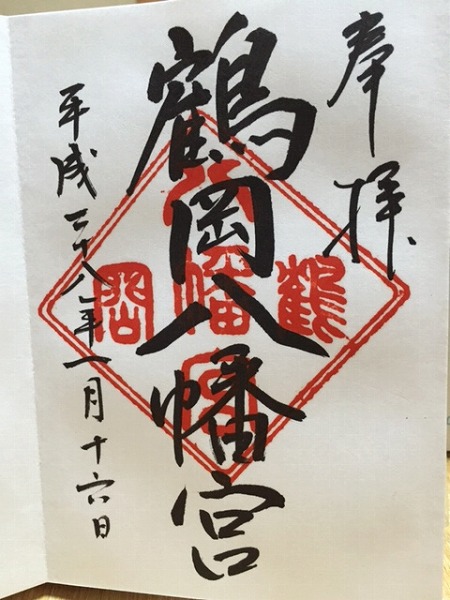 奉拝
鶴岡八幡宮
平成二十八年一月十六日
鶴
八幡宮
岡